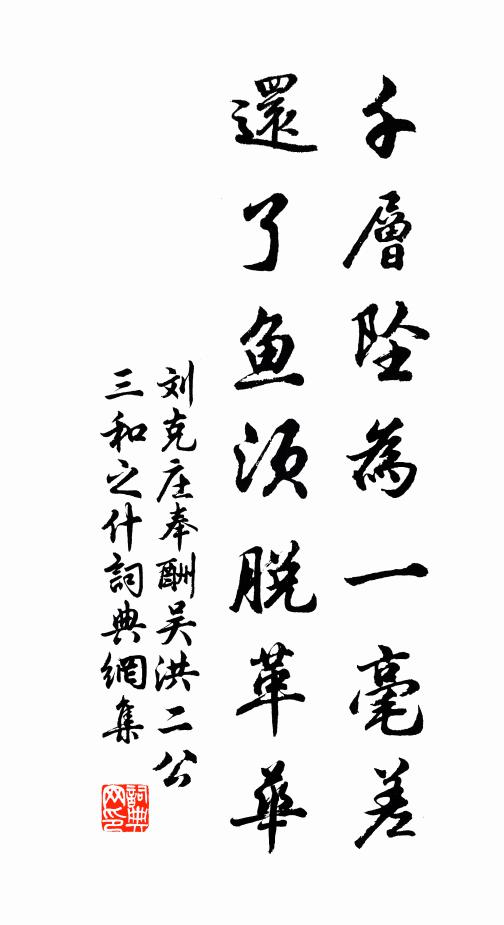 千層墜為一毫差
還了魚須脫革華
刘克庄奉酬吴洪二公
三和之什詞典網集
詞典網印